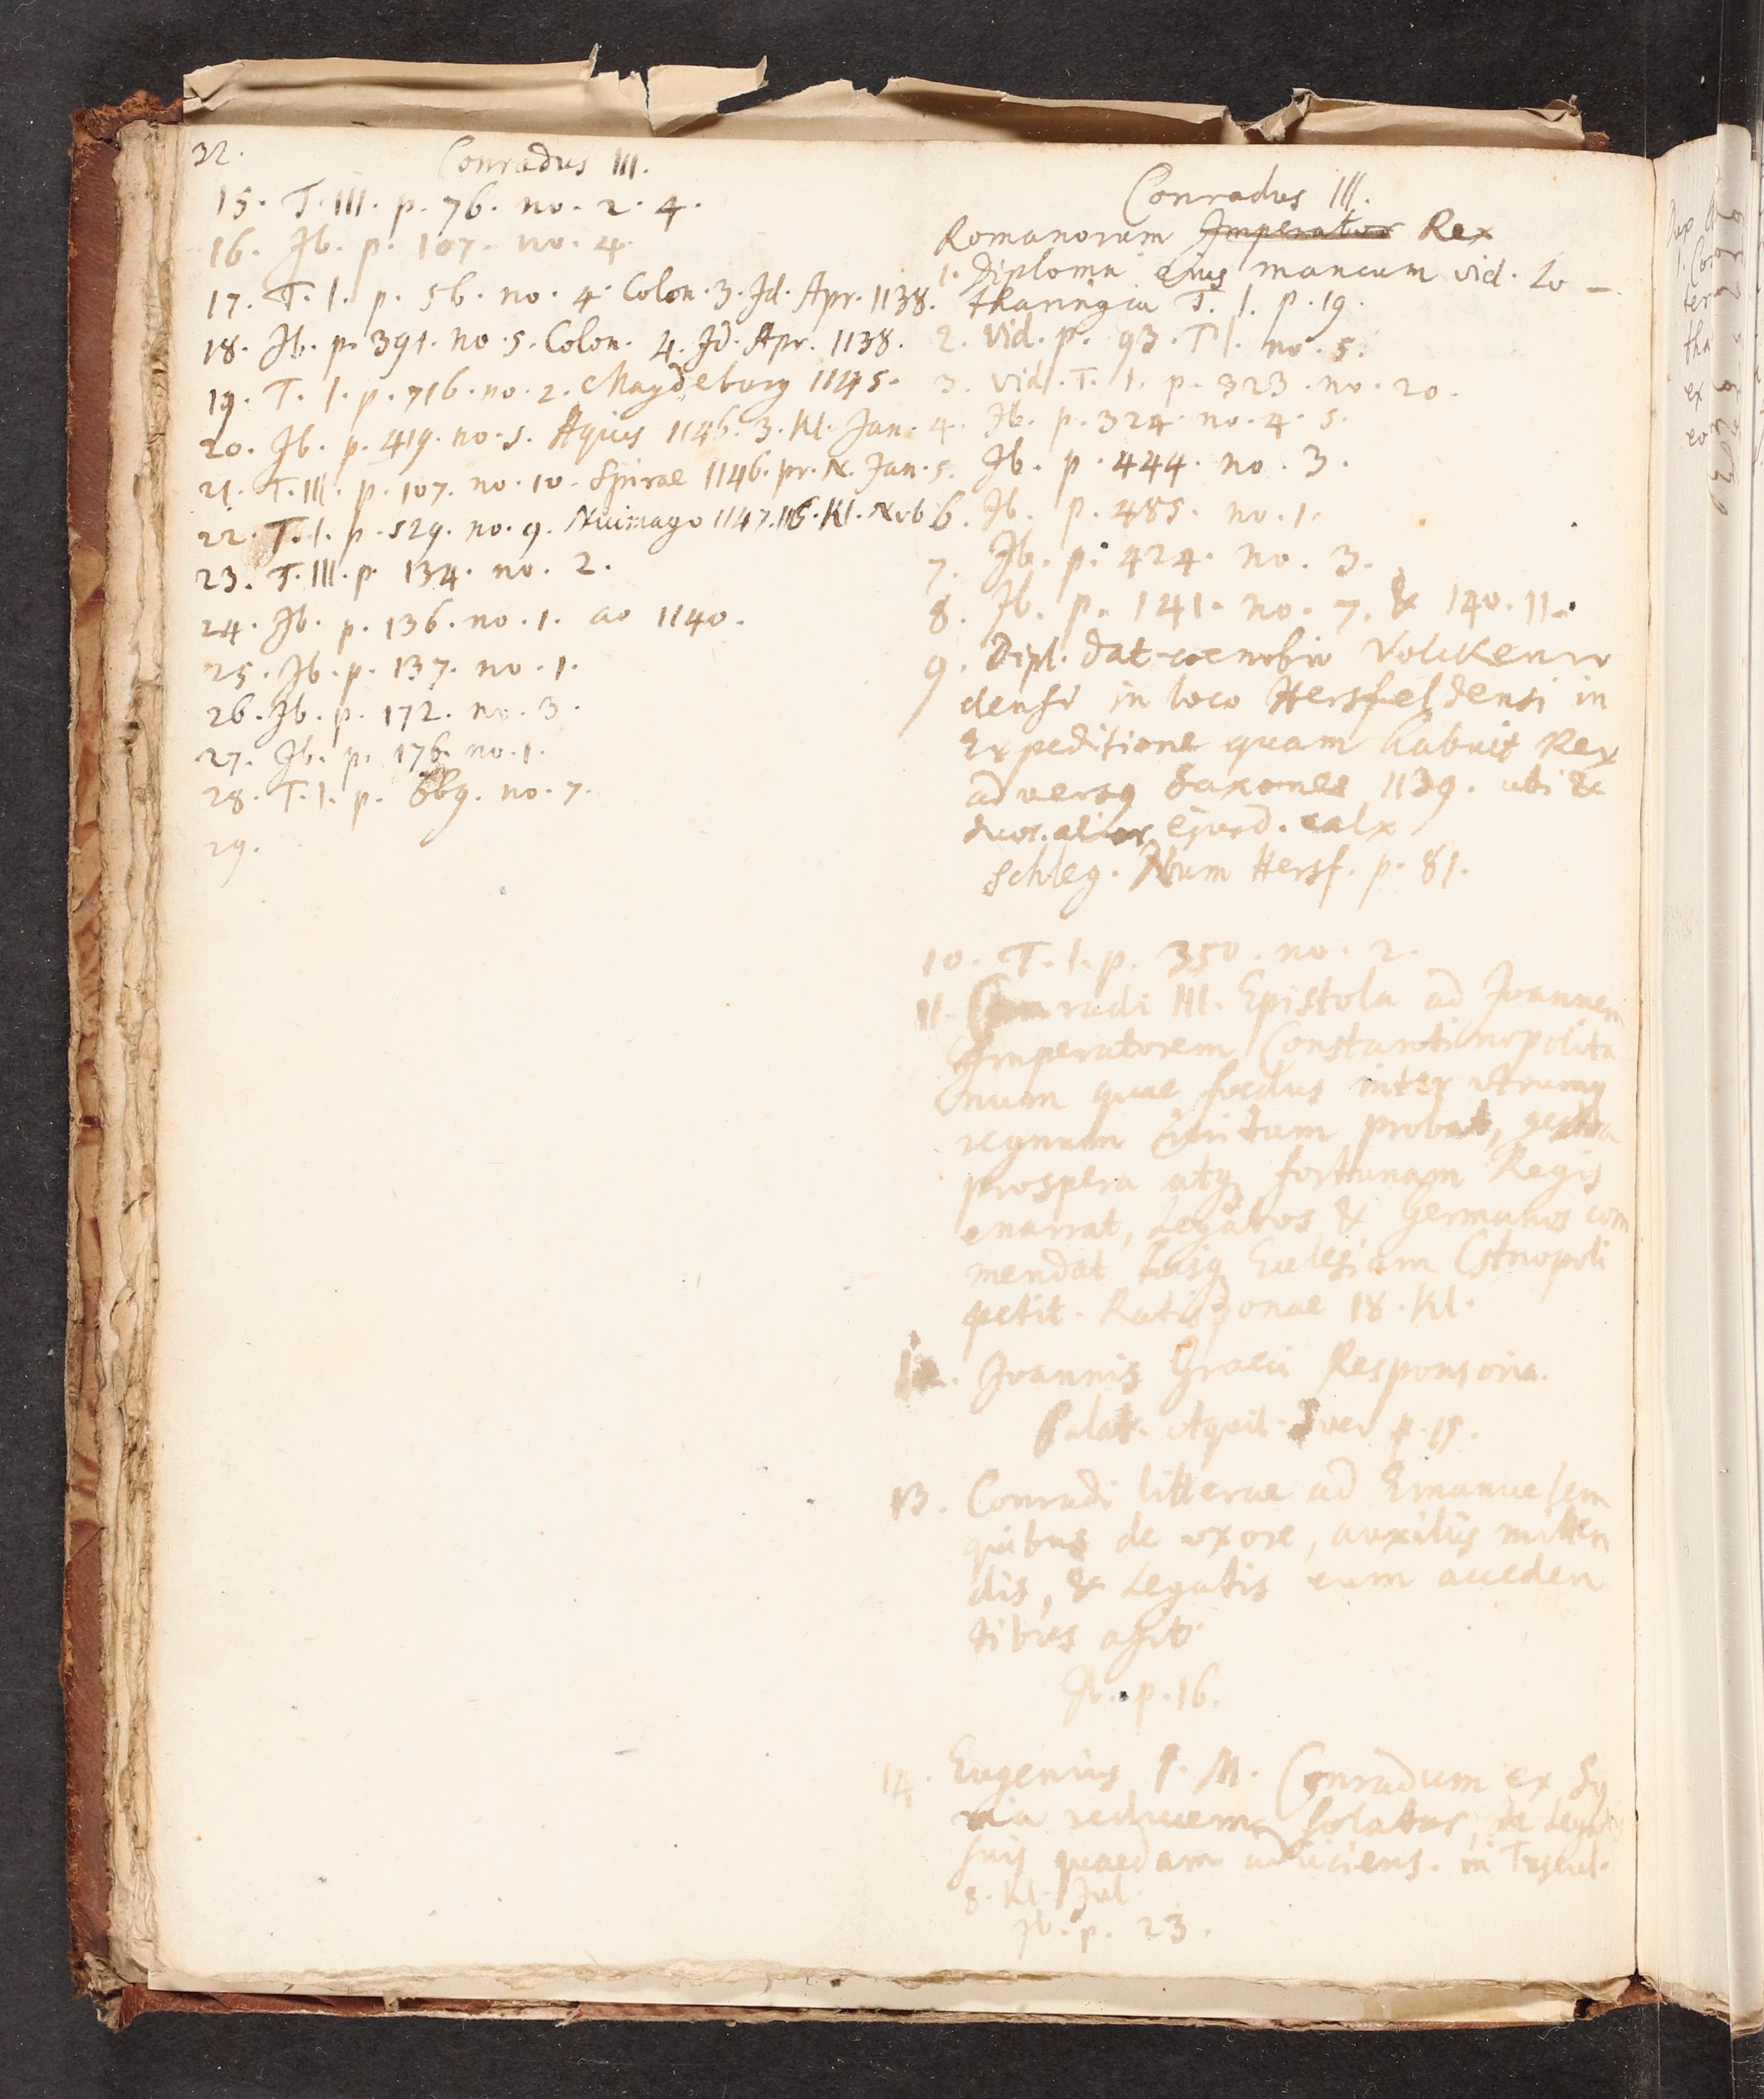 32.
Conradus III.
15. T. III. p. 76. no. 2. 4.
16. Ib. p. 107. no. 4.
17. T. I. p. 56. no. 4. Colon. 3. Id. Apr. 1138.
18. Ib. p. 391. no. 5. Colon. 4. Id. Apr. 1138.
19. T. I. p. 716. no. 2. Magdeburg 1145.
20. Ib. p. 419. no. 5. Aquis 1146. 3. Kl. Jan.
21. T. III. p. 107. no. 10. Spirae 1146. pr. N. Jan.
22. T. I. p. 529. no. 9. Kl. Nob
23. T. III. p. 134. no. 2.
24. Ib. p. 136. no. 1. ao 1140.
25. Ib. p. 137. no. 1.
26. Ib. p. 172. no. 3.
27. Ib. p. 176. no. 1.
28. T. I. p. 669. no. 7.
29.
Conradus III.
Romanorum Imperator Rex
1. Diploma ejus mancum vid. Lo-
tharingia T. I. p. 19.
2. Vid. p. 93. T. I. no. 5.
3. Vid. T. I. p. 323. no. 20.
4. Ib. p. 324. no. 4. 5.
5. Ib. p. 444. no. 3.
6. Ib. p. 485. no. 1.
7. Ib. p. 424. no. 3.
8. Ib. p. 141. no. 7. & 140. 11.
9. Dipl. dat coenobio Volckenro
densi in loco Hersfeldensi in
Expeditione quam habuit Rex
adversq Saxones 1139. ubi &
duos alios ejusd. calx
Schleg. Num Hersf. p. 81.
10. T. I. p. 350. no. 2.
11. Conradi III. Epistola ad Joannem
Imperatorem Constantinopolita
num quae foedus inter utrumq
regnum initum probat, gesta
prospera atq fortunam Regis
enarrat, Legatos & Germanos com
mendat Ecclesiam Cstnopoli
petit. Ratisponae 18. Kl.
12. Joannis Graeci Responsoria.
Palat. Aquil. p. 15.
13. Conradi litterae ad Emanuelem
quibus de uxore, auxiliis mitten
dis, & Legatis eum acceden
tibus agit.
Ib. p. 16.
14. Eugenius P. M. Conradum ex Sy
ria reducem solatur, de Legatis
suis quaedam adiiciens. in Tuscul.
8. Kl. Jul.
Ib. p. 23.